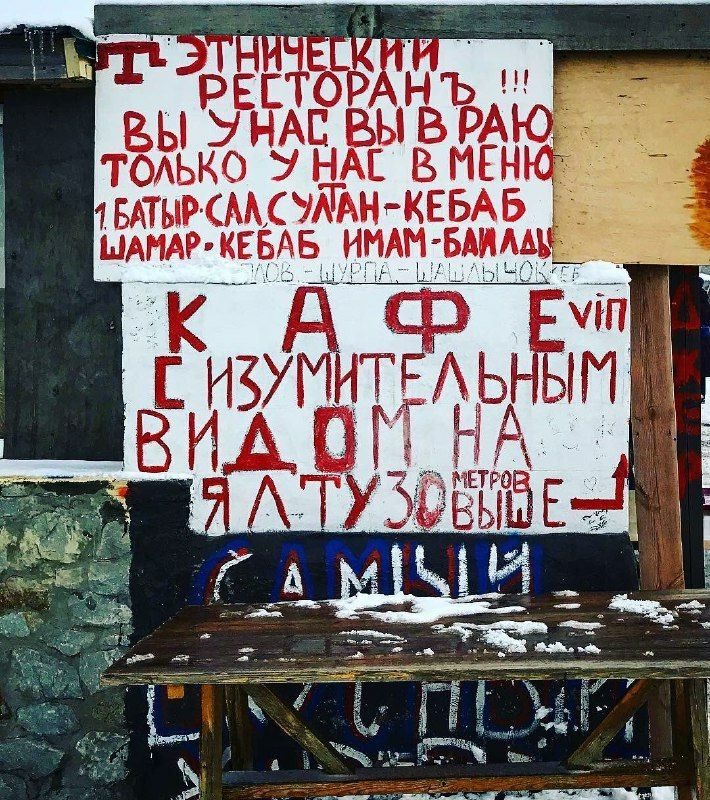 ЭТНИЧЕСКИЙ
РЕСТОРАНЪ !!!
ВЫ У НАС ВЫ В РАЮ
ТОЛЬКО У НАС В МЕНЮ
1. БАТЫР-САЛ, СУЛТАН-КЕБАБ
ШАМАР-КЕБАБ ИМАМ-БАИЛДЫ
ПЛОВ.-ШУРПА.-ШАШЛЫЧОК
КАФЕ viП
С ИЗУМИТЕЛЬНЫМ
ВИДОМ НА
ЯЛТУ 30 МЕТРОВ ВЫШЕ
САМЫЙ